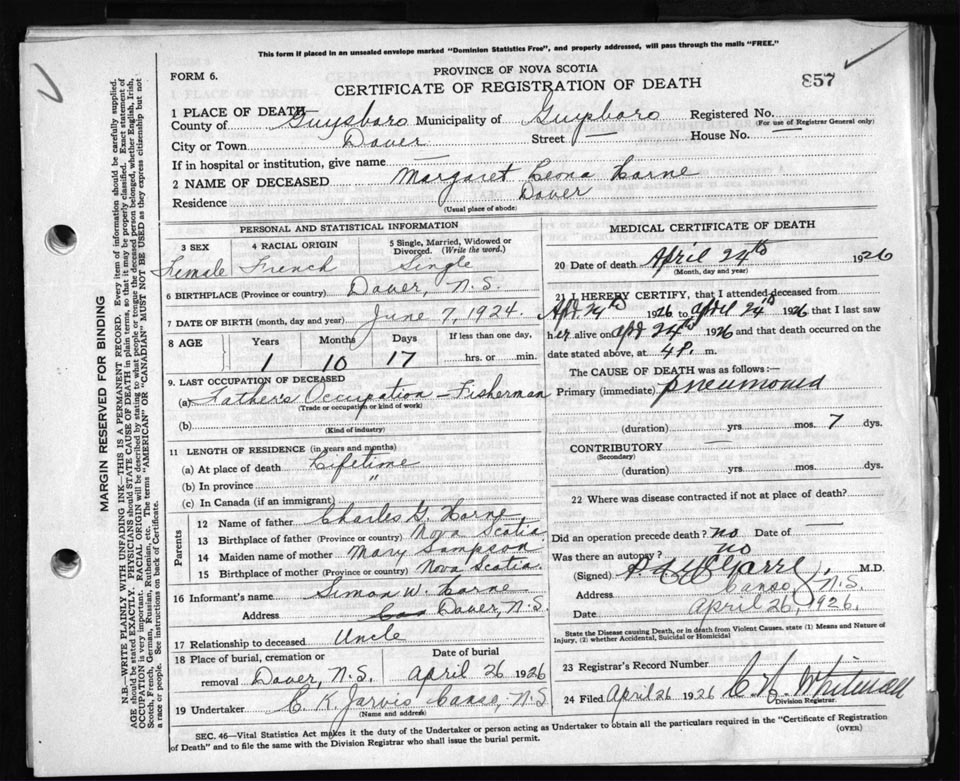 This form if placed in an unsealed envelope marked "Dominion Statistics Free", and properly addressed, will pass through the mails "FREE."
FORM 6.
PROVINCE OF NOVA SCOTIA
CERTIFICATE OF REGISTRATION OF DEATH
857
1 PLACE OF DEATH
County of Guysboro Municipality of Guysboro Registered No.
(For use of Registrar General only)
City or Town Dover Street — House No. —
If in hospital or institution, give name —
2 NAME OF DECEASED Margaret Leona Horne
Residence Dover
(Usual place of abode)
PERSONAL AND STATISTICAL INFORMATION
3 SEX 4 RACIAL ORIGIN 5 Single, Married, Widowed or Divorced. (Write the word.)
Female French Single
6 BIRTHPLACE (Province or country) Dover, N.S.
7 DATE OF BIRTH (month, day and year) June 7, 1924.
8 AGE Years Months Days If less than one day,
1 10 17 hrs. or min.
9. LAST OCCUPATION OF DECEASED
(a) Father's Occupation – Fisherman
(Trade or occupation or kind of work)
(b)
(Kind of industry)
11 LENGTH OF RESIDENCE (in years and months)
(a) At place of death Lifetime
(b) In province "
(c) In Canada (if an immigrant)
Parents
12 Name of father Charles G. Horne
13 Birthplace of father (Province or country) Nova Scotia
14 Maiden name of mother Mary Sampson
15 Birthplace of mother (Province or country) Nova Scotia.
16 Informant's name Simon W. Horne
Address Dover, N.S.
17 Relationship to deceased Uncle
18 Place of burial, cremation or removal Dover, N.S. Date of burial April 26 1926
19 Undertaker C. K. Jarvis Canso, N.S
(Name and address)
MEDICAL CERTIFICATE OF DEATH
20 Date of death April 24th 1926
(Month, day and year)
21 I HEREBY CERTIFY, that I attended deceased from
Apr 24th 1926 to April 24th 1926 that I last saw
h er alive on Apr 24th 1926 and that death occurred on the
date stated above, at 4 P. m.
The CAUSE OF DEATH was as follows:—
Primary (immediate) pneumonia
(duration) yrs mos. 7 dys.
CONTRIBUTORY —
(Secondary)
(duration) yrs. mos. dys.
22 Where was disease contracted if not at place of death?
Did an operation precede death? no Date of —
Was there an autopsy? no
(Signed) M.D.
Address Canso, N.S.
Date April 26, 1926.
State the Disease causing Death, or in death from Violent Causes, state (1) Means and Nature of
Injury, (2) whether Accidental, Suicidal or Homicidal
23 Registrar's Record Number
24 Filed April 26 1926 Whitman
Division Registrar.
SEC. 46—Vital Statistics Act makes it the duty of the Undertaker or person acting as Undertaker to obtain all the particulars required in the "Certificate of Registration
of Death" and to file the same with the Division Registrar who shall issue the burial permit.
(OVER)
MARGIN RESERVED FOR BINDING
N.B.—WRITE PLAINLY WITH UNFADING INK—THIS IS A PERMANENT RECORD. Every item of information should be carefully supplied.
AGE should be stated EXACTLY. PHYSICIANS should STATE CAUSE OF DEATH in plain terms, so that it may be properly classified. Exact statement of
OCCUPATION is very important. RACIAL ORIGIN will be described by stating to what people or tongue the deceased person belonged, whether English, Irish,
Scotch, French, German, Russian, Ruthenian, etc. The terms "AMERICAN" OR "CANADIAN" MUST NOT BE USED as they express citizenship but not
a race or people. See instructions on back of Certificate.